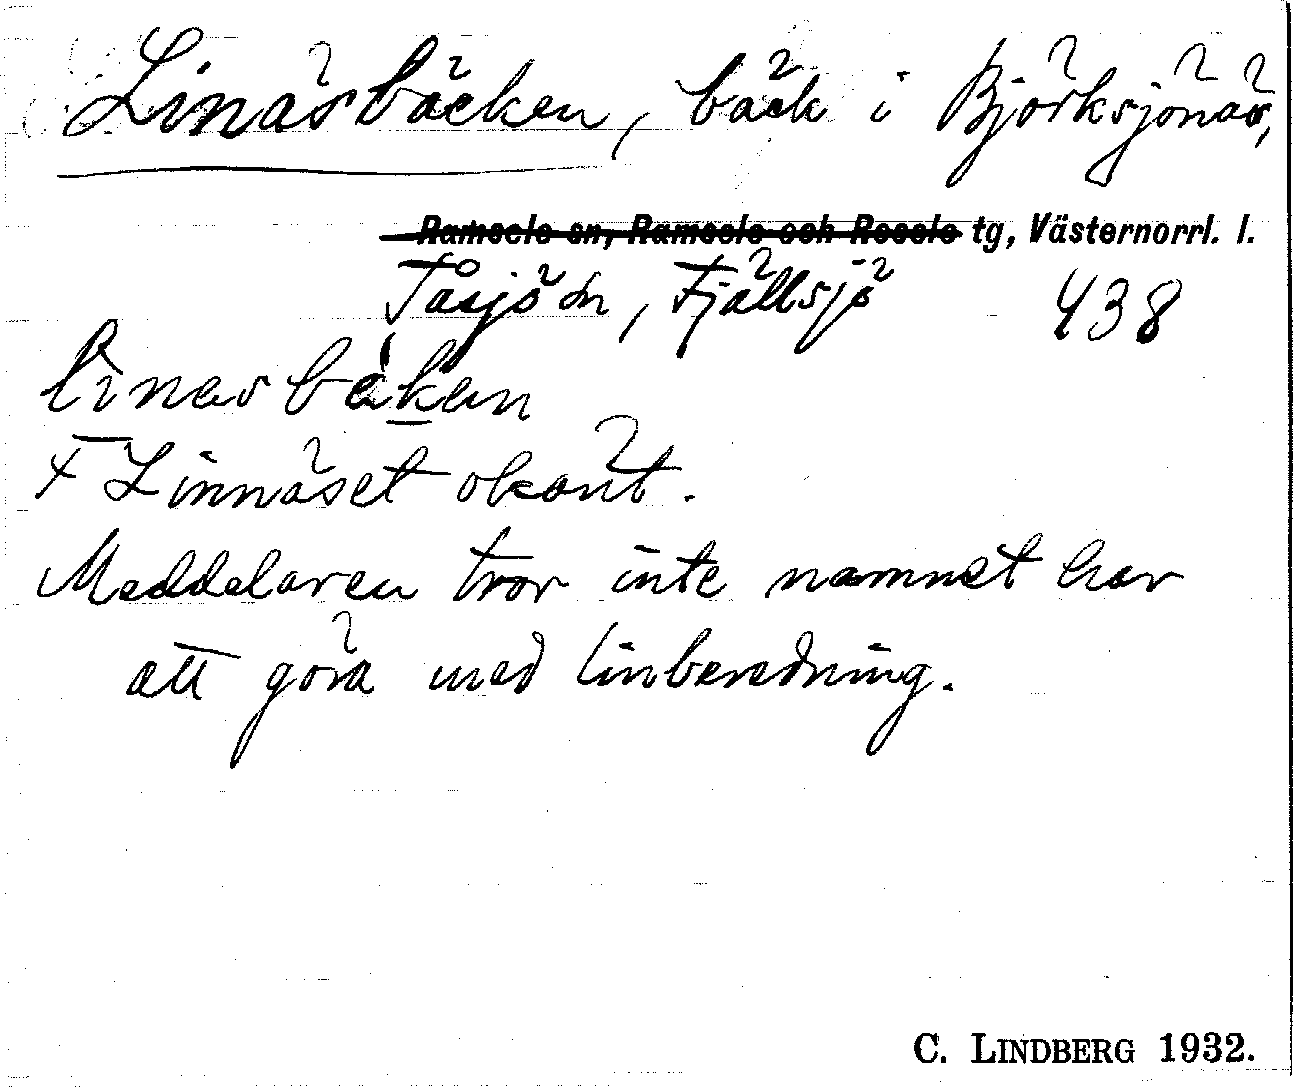 Linäsbäcken, bäck i Björksjönäs,
Ramsele sn, Ramsele och Resele tg, Västernorrl. l.
Tåsjö sn, Fjällsjö 438
linasbäken
F Linnäset okänt.
Meddelaren tror inte namnet har
att göra med linberedning.
C. LINDBERG 1932.